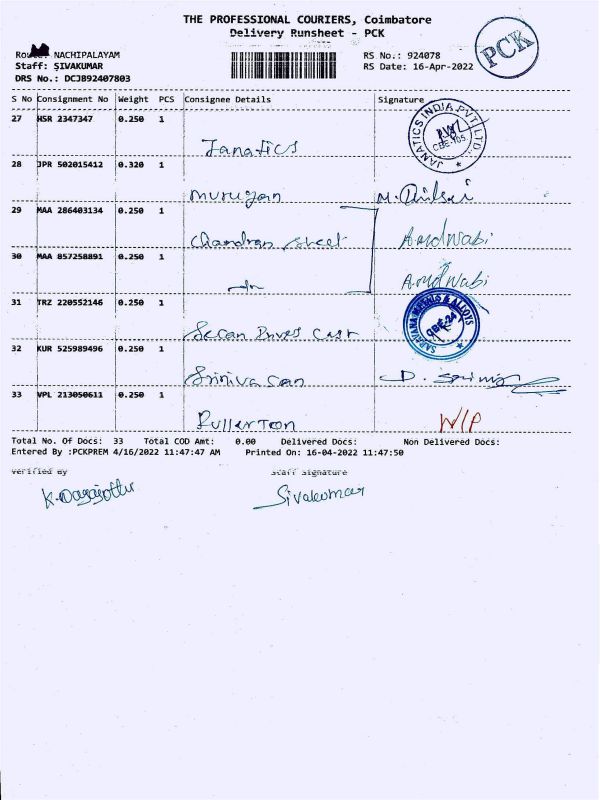 THE PROFESSIONAL COURIERS, Coimbatore
Delivery Runsheet - PCK
PCK
NACHIPALAYAM
Staff: SIVAKUMAR
DRS No.: DCJB92407803
RS No.: 924078
RS Date: 16-Apr-2022
S No Consignment No Weight PCS Consignee Details Signature
27 HSR 2347347 0.250 1
Janatics
JANATICS INDIA PVT LTD.
28 JPR 502015412 0.320 1
murugan M.
29 MAA 286403134 0.250 1
Chandran street
30 MAA 857258891 0.250 1
31 TRZ 220552146 0.250 1
SARAVANA METALS & ALLOYS
CBE-24
32 KUR 525989496 0.250 1
Srinivasan D.
33 VPL 213050611 0.250 1
Fullerton
Total No. Of Docs: 33 Total COD Amt: 0.00 Delivered Docs: Non Delivered Docs:
Entered By :PCKPREM 4/16/2022 11:47:47 AM Printed On: 16-04-2022 11:47:50
Verified By Staff Signature
Sivakumar